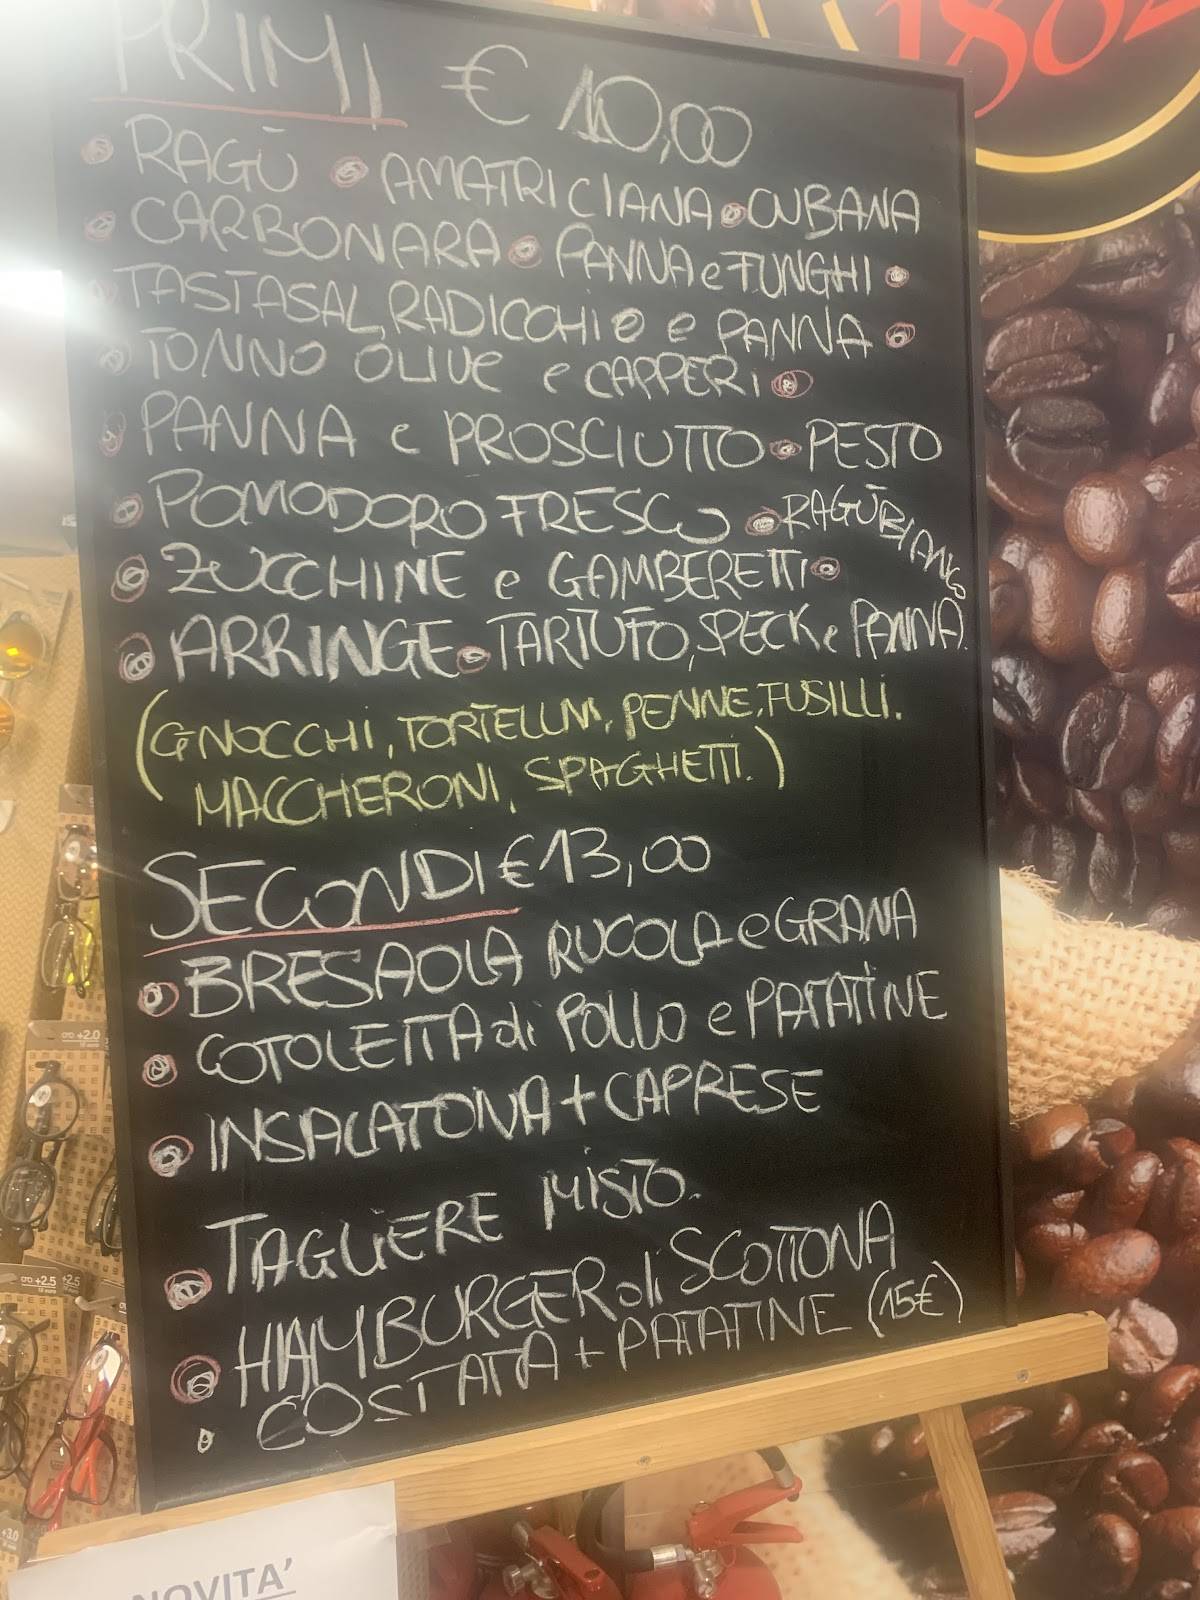 PRIMI € 10,00
• RAGÙ • AMATRICIANA • CUBANA
• CARBONARA • PANNA e FUNGHI •
TASTASAL, RADICCHIO e PANNA •
• TONNO OLIVE e CAPPERI •
• PANNA e PROSCIUTTO • PESTO
• POMODORO FRESCO • RAGÙ BIANCO
• ZUCCHINE e GAMBERETTI •
• ARRINGE • TARTUFO, SPECK e PANNA.
(GNOCCHI, TORTELLINI, PENNE, FUSILLI.
MACCHERONI, SPAGHETTI.)
SECONDI € 13,00
• BRESAOLA RUCOLA e GRANA
• COTOLETTA di POLLO e PATATINE
• INSALATONA + CAPRESE
• TAGLIERE MISTO.
• HAMBURGER di SCOTTONA
• COSTATA + PATATINE (15€)
NOVITA'
+2.0
+2.5
+2.5
+3.0